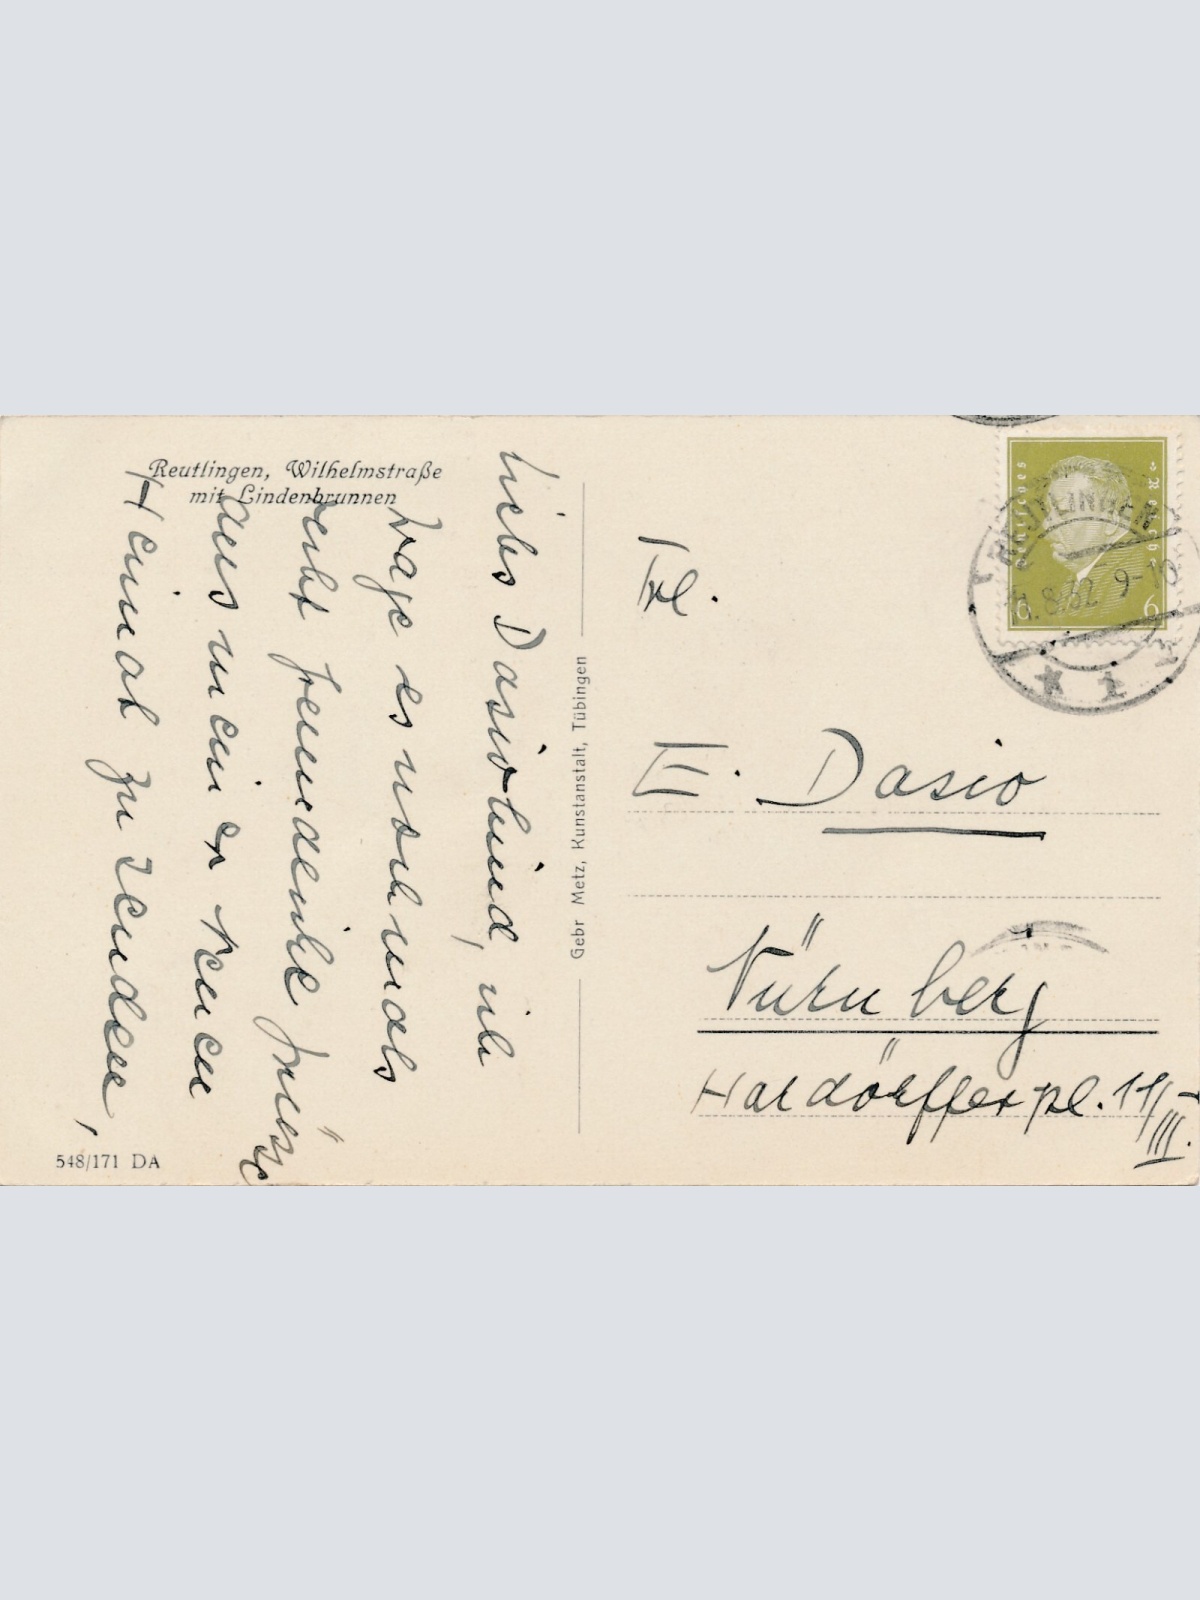 Reutlingen, Wilhelmstraße
mit Lindenbrunnen
Liebs Dasiokind, ich
wage es nochmals
recht freundliche Grüsse
aus meiner neuen
Heimat zu senden,
548/171 DA
Gebr Metz, Kunstanstalt, Tübingen
Deutsches Reich
6 6
REUTLINGEN
8.32 9-10
* 1
Frl.
E. Dasio
Nürnberg
Hardörfferpl. 11/III.